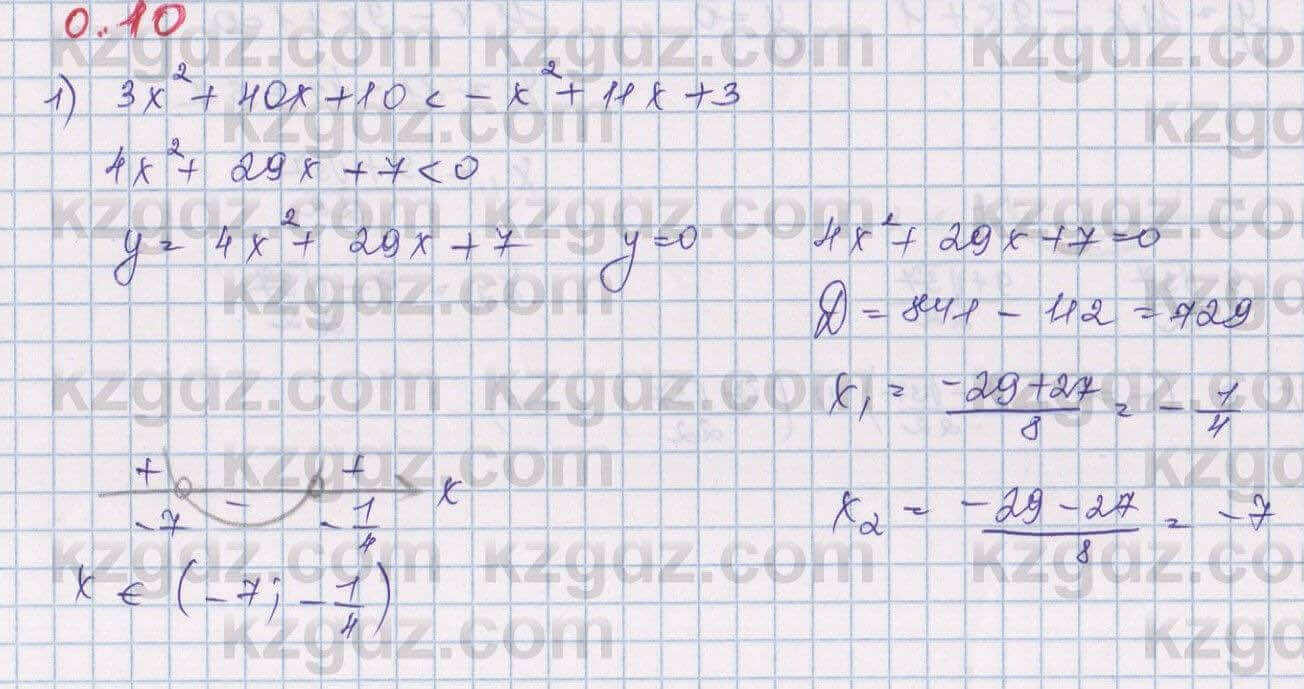 0.10
1) 3x² + 40x + 10 < -x² + 11x + 3
4x² + 29x + 7 < 0
y = 4x² + 29x + 7 y = 0 4x² + 29x + 7 = 0
D = 841 - 112 = 729
x₁ = (-29+27)/8 = -1/4
+ - + x
-7 -1/4
x₂ = (-29-27)/8 = -7
x ∈ (-7; -1/4)
kzgdz.com